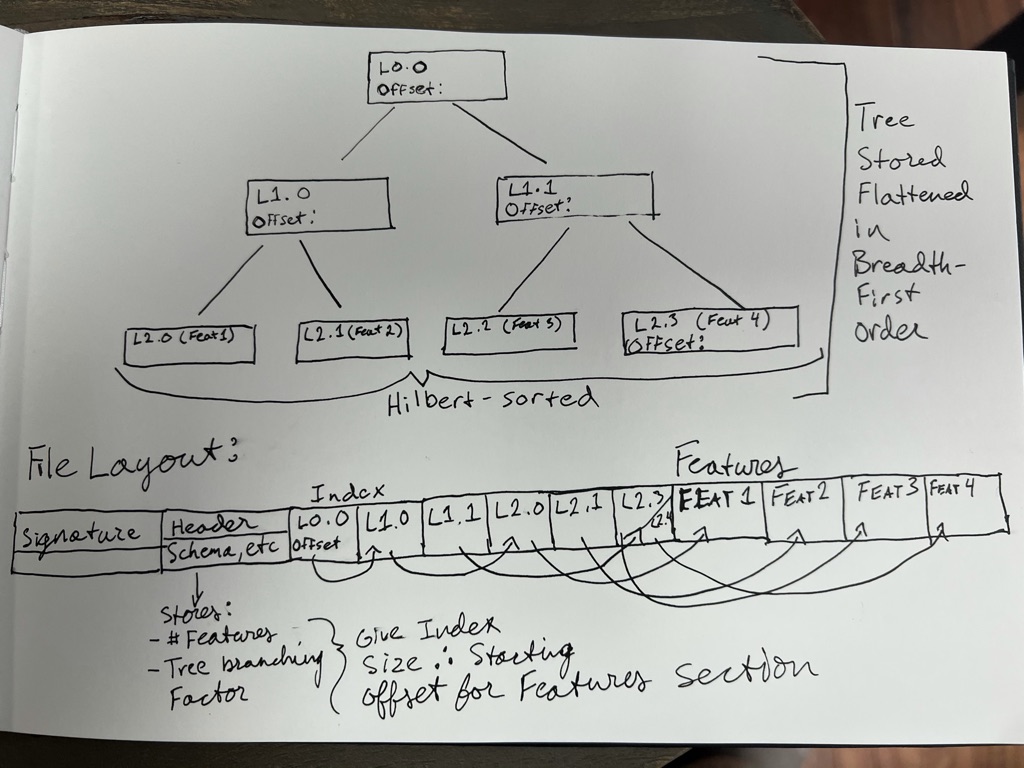 L0.0
Offset:
L1.0
Offset:
L1.1
Offset:
L2.0 (Feat 1)
L2.1 (Feat 2)
L2.2 (Feat 3)
L2.3 (Feat 4)
Offset:
Hilbert-sorted
Tree
Stored
Flattened
in
Breadth-
First
order
File Layout:
Index
Features
Signature
Header
Schema, etc
L0.0
Offset
L1.0
L1.1
L2.0
L2.1
L2.3
L2.4
FEAT 1
FEAT 2
FEAT 3
FEAT 4
Stores:
- # Features
- Tree branching
Factor
Give Index
Size ∴ Starting
offset for Features section